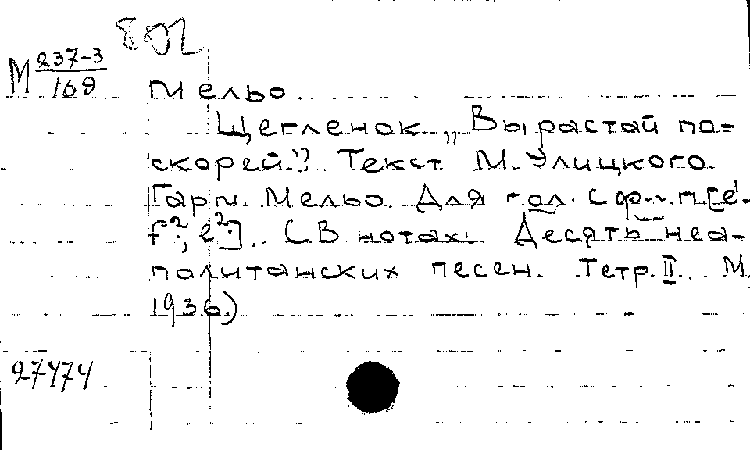 802
М 237-3/169
Мельо
Щегленок „Вырастай по-
скорей"? Текст М. Улицкого.
Гарм. Мельо. Для гол. с ф-п. [e'-
f²; e²]. (В нотах: Десять неа-
политанских песен. Тетр. II. М.
1936.)
27474